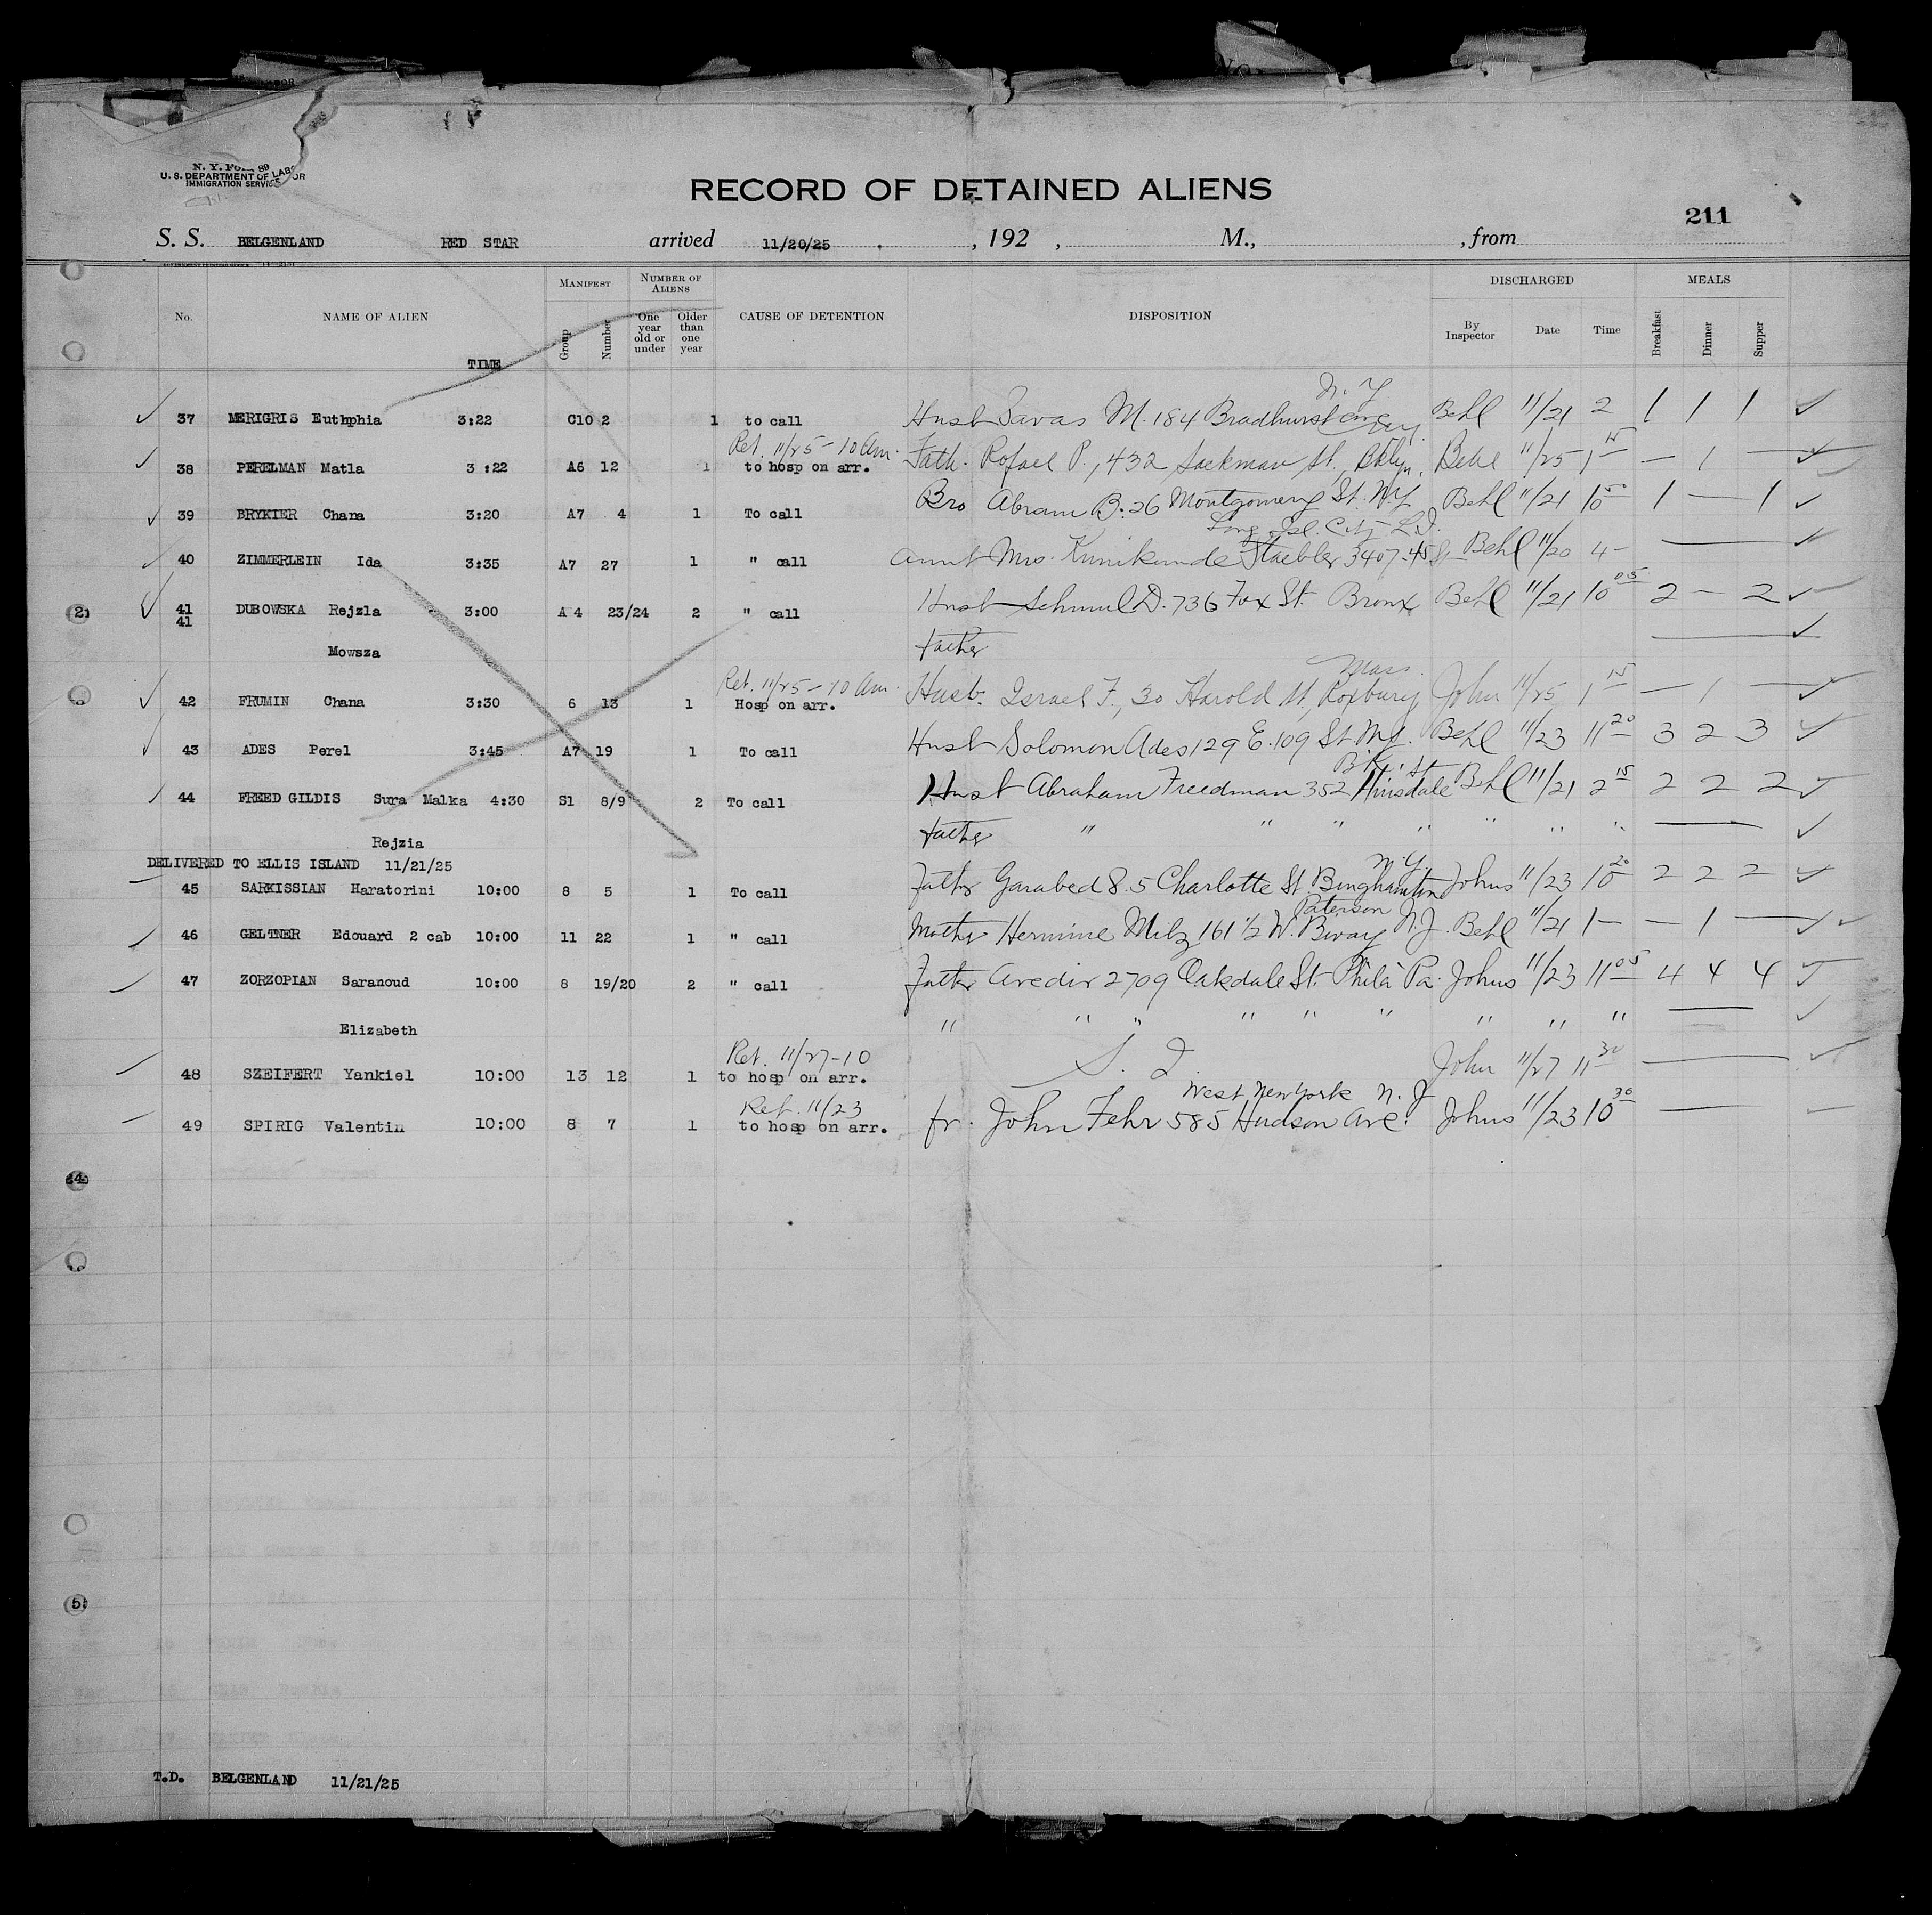 N. Y. Form 89
U. S. DEPARTMENT OF LABOR
IMMIGRATION SERVICE
RECORD OF DETAINED ALIENS
211
S. S. BELGENLAND RED STAR arrived 11/20/25 , 192 , M., , from
No. NAME OF ALIEN TIME MANIFEST Group Number NUMBER OF ALIENS One year old or under Older than one year CAUSE OF DETENTION DISPOSITION DISCHARGED By Inspector Date Time MEALS Breakfast Dinner Supper
N. Y.
37 MERIGRIS Euthphia 3:22 C10 2 1 to call Husb Savas M. 184 Bradhurst Ave Behl 11/21 2 1 1 1
Ret. 11/25 - 10 Am.
38 PERELMAN Matla 3:22 A6 12 1 to hosp on arr. Fath. Rofael P., 432 Sackman St., Bklyn. Behl 11/25 1 15 — 1 —
39 BRYKIER Chana 3:20 A7 4 1 To call Bro Abram B. 26 Montgomery St. N.Y Behl 11/21 10 50 1 — 1
Long Isl. City L.I.
40 ZIMMERLEIN Ida 3:35 A7 27 1 " call Aunt Mrs. Kunikunde Staebler 3407-45 St Behl 11/20 4 —
41 DUBOWSKA Rejzla 3:00 A 4 23/24 2 " call Husb Schmul D. 736 Fox St. Bronx Behl 11/21 10 05 2 — 2
41
Mowsza father
Mass.
Ret. 11/25 - 10 Am.
42 FRUMIN Chana 3:30 6 13 1 Hosp on arr. Husb. Israel F., 30 Harold St., Roxbury John 11/25 1 15 — 1 —
43 ADES Perel 3:45 A7 19 1 To call Husb Solomon Ades 129 E. 109 St N.Y. Behl 11/23 11 20 3 2 3
44 FREED GILDIS Sura Malka 4:30 S1 8/9 2 To call Husb Abraham Freedman 352 Hinsdale St Behl 11/21 2 15 2 2 2
Rejzia father " " " " " " "
DELIVERED TO ELLIS ISLAND 11/21/25
N.Y.
45 SARKISSIAN Haratorini 10:00 8 5 1 To call Father Garabed 8.5 Charlotte St. Binghamton Johns 11/23 10 20 2 2 2
Paterson
46 GELTNER Edouard 2 cab 10:00 11 22 1 " call Mother Hermine Milz 161 1/2 W. Bway N.J. Behl 11/21 1 — — 1 —
47 ZORZOPIAN Saranoud 10:00 8 19/20 2 " call Father Avedir 2709 Oakdale St. Phila Pa. Johns 11/23 11 05 4 4 4
Elizabeth " " " " " " " " "
Ret. 11/27-10
48 SZEIFERT Yankiel 10:00 13 12 1 to hosp on arr. S. I John 11/27 11 30
Ret. 11/23
West New York N. J
49 SPIRIG Valentin 10:00 8 7 1 to hosp on arr. fr. John Fehr 585 Hudson Ave. Johns 11/23 10 30
T.D. BELGENLAND 11/21/25